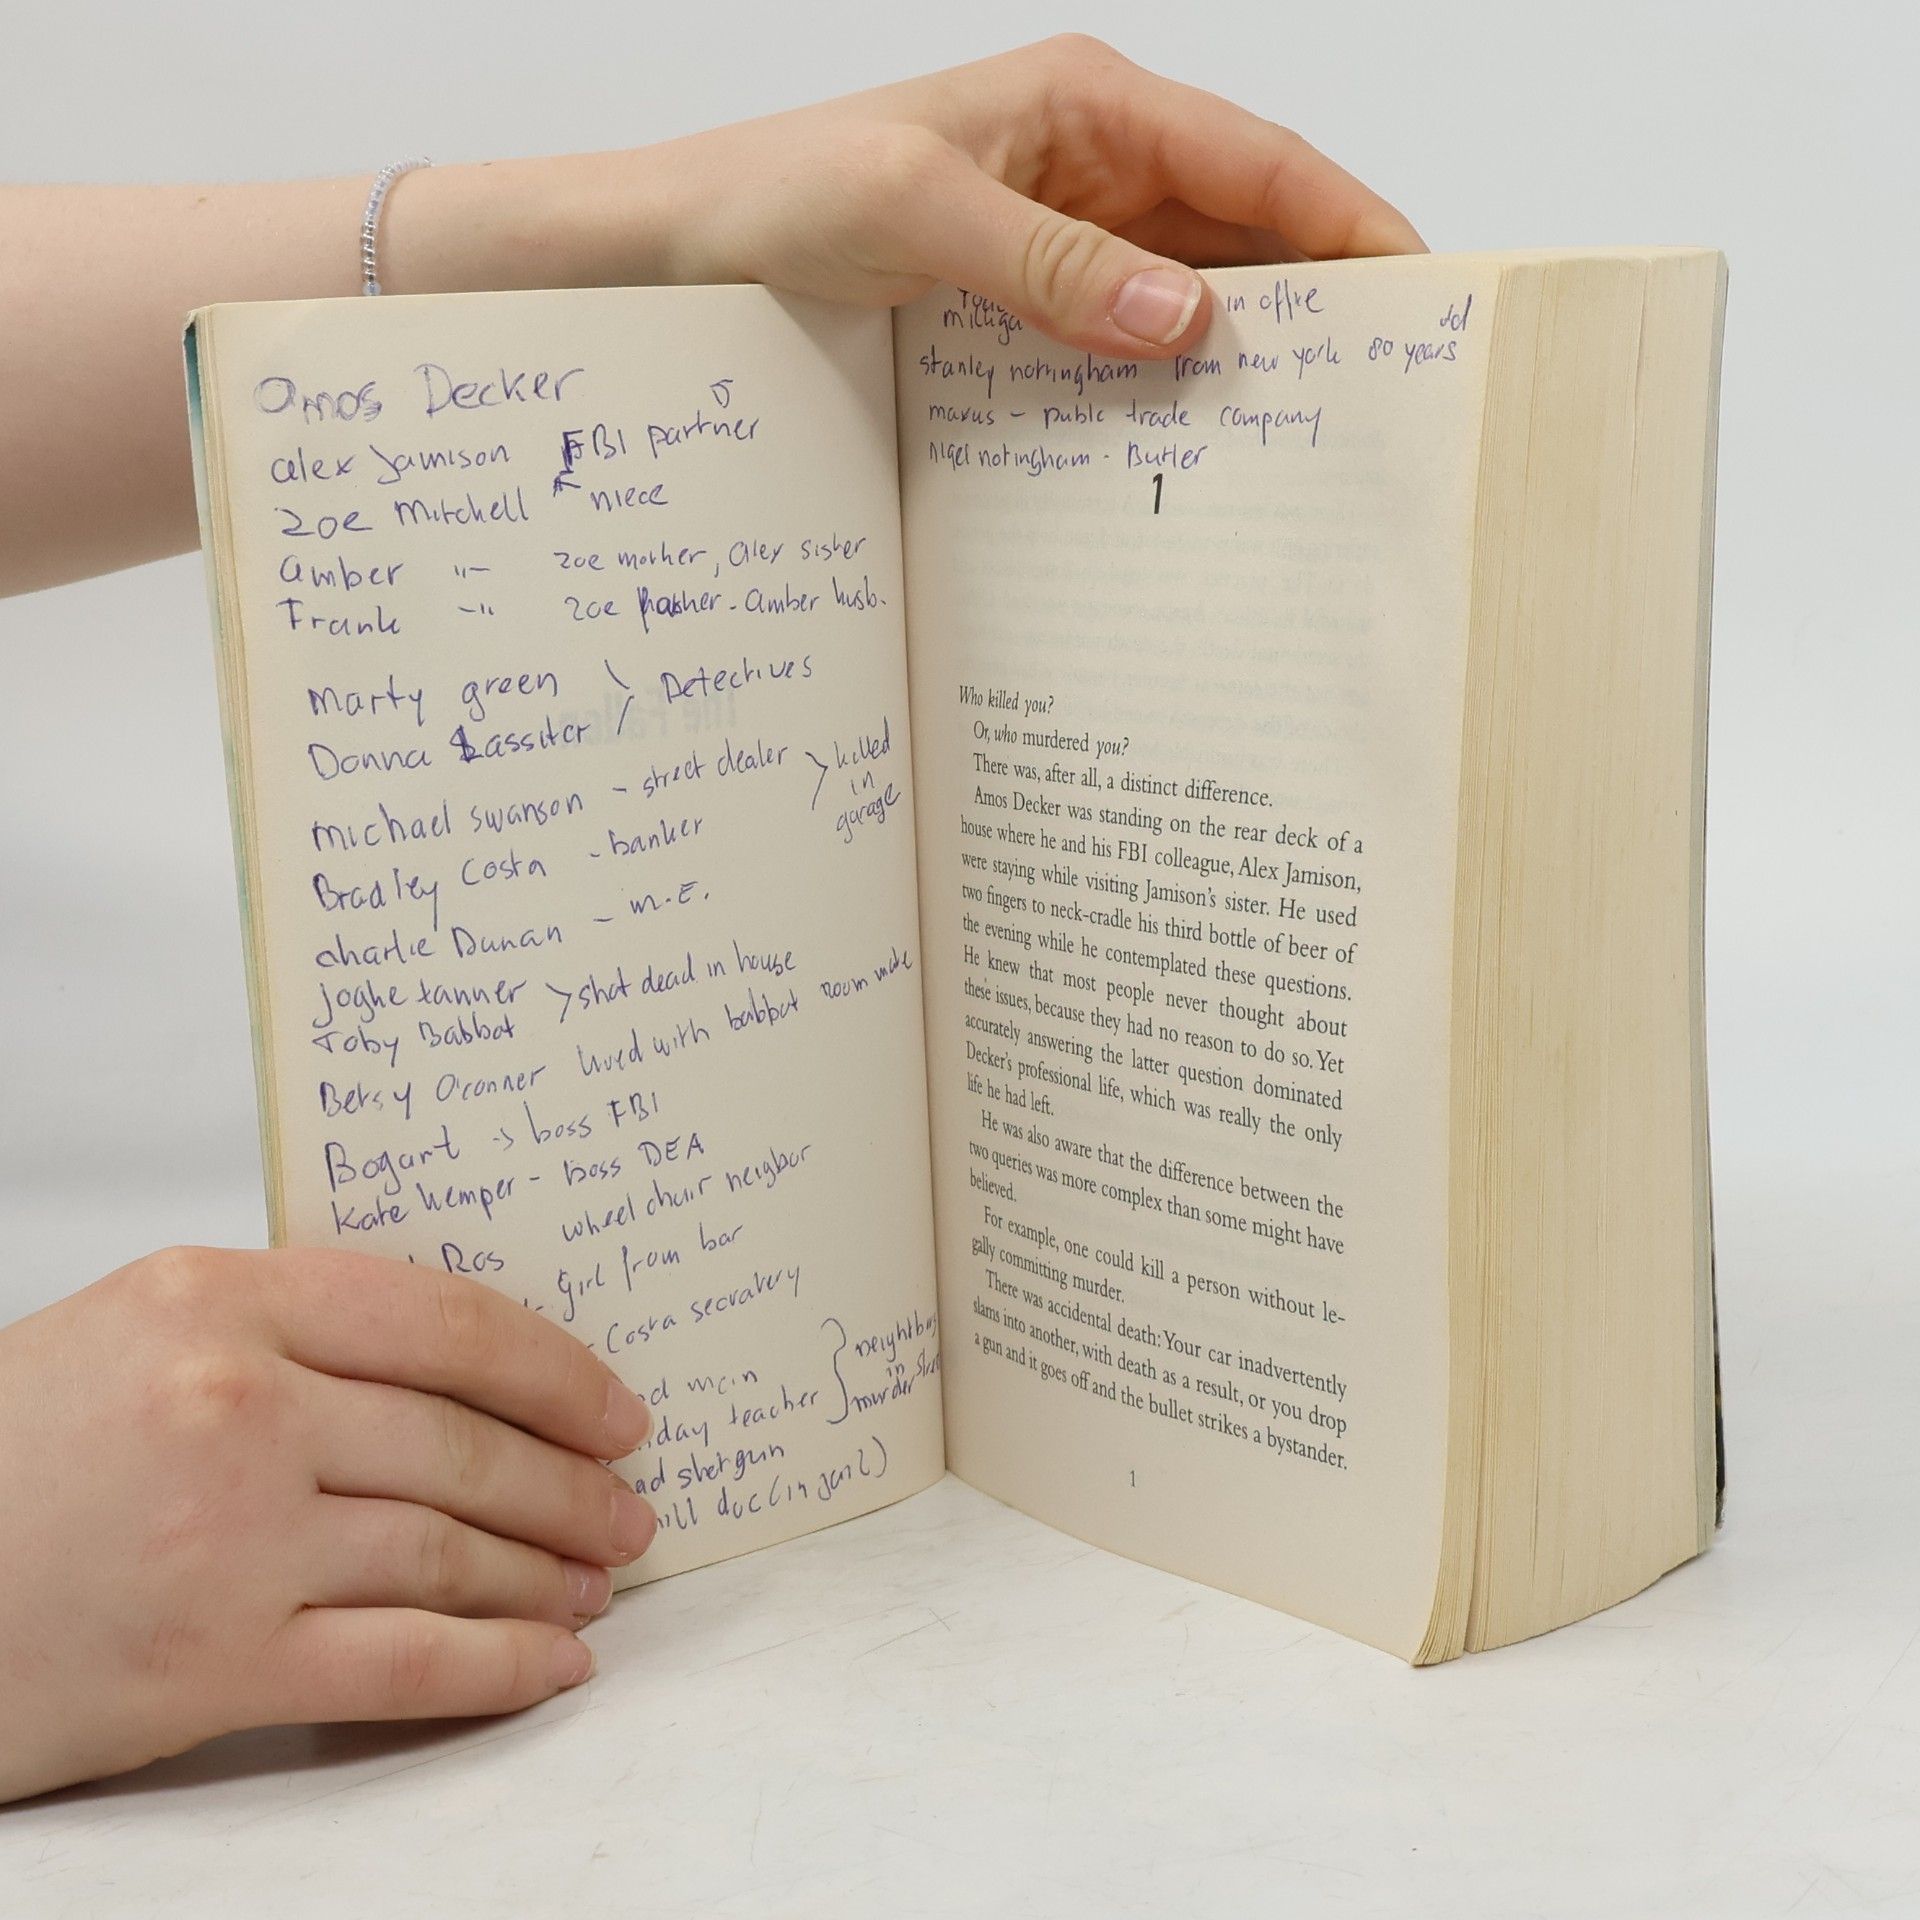 Amos Decker
alex Jamison FBI partner
zoe Mitchell niece
Amber -"- zoe mother, alex sister
Frank -"- zoe father - amber husb.
Marty green
Donna Lassiter Detectives
Michael swanson - street dealer
Bradley Costa - banker
killed
in
garage
charlie Dunan - M.E.
Joghe tanner
Toby Babbot
shot dead in house
Betsy O'conner lived with babbot room mate
Bogart -> boss FBI
Kate kemper - boss DEA
Ros wheel chair neigbor
- girl from bar
- Costa secratery
teacher
shotgun
doc (in jail)
in
murder
in office
stanley nottingham from new york 80 years
old
maxus - public trade company
nigel notingham - Butler
1
Who killed you?
Or, who murdered you?
There was, after all, a distinct difference.
Amos Decker was standing on the rear deck of a
house where he and his FBI colleague, Alex Jamison,
were staying while visiting Jamison's sister. He used
two fingers to neck-cradle his third bottle of beer of
the evening while he contemplated these questions.
He knew that most people never thought about
these issues, because they had no reason to do so. Yet
accurately answering the latter question dominated
Decker's professional life, which was really the only
life he had left.
He was also aware that the difference between the
two queries was more complex than some might have
believed.
For example, one could kill a person without le-
gally committing murder.
There was accidental death: Your car inadvertently
slams into another, with death as a result, or you drop
a gun and it goes off and the bullet strikes a bystander.
1